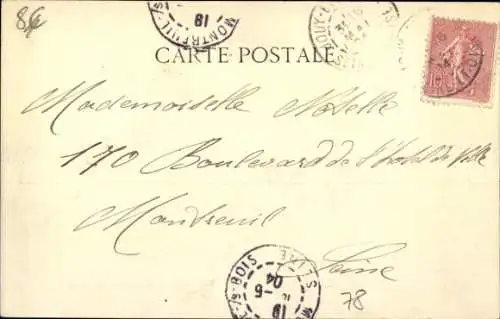 8€
MONTREUIL-S
18
JOUY-
CARTE POSTALE
10
Mademoiselle Noselle
170 Boulevard de l'hotel de Ville
Montreuil
Seine
S-BOIS
SEINE
5
04
78